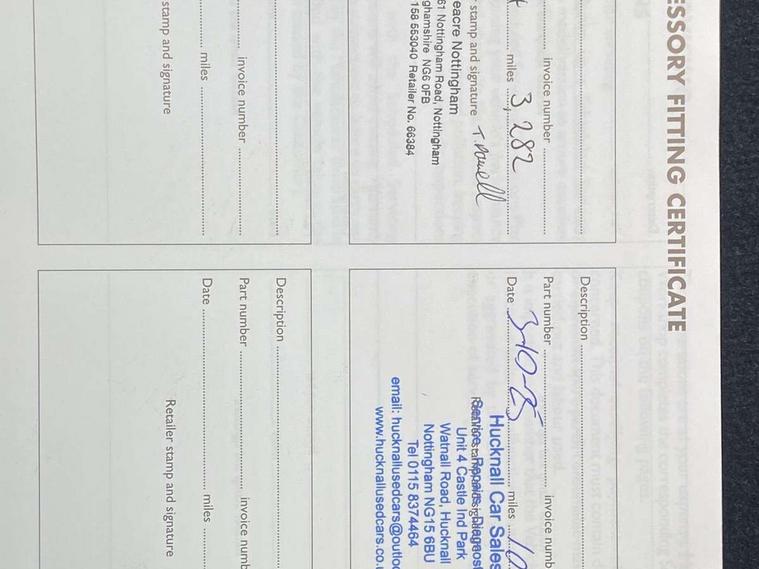 ESSORY FITTING CERTIFICATE
invoice number
miles 3,282
stamp and signature T. Powell
eacre Nottingham
61 Nottingham Road, Nottingham
ghamshire NG6 0FB
158 653040 Retailer No. 66384
Description
Part number invoice numb
Date 3-10-25 miles 10
Hucknall Car Sales
Service - Repairs - Diagnost
Unit 4 Castle Ind Park
Watnall Road, Hucknall
Nottingham NG15 6BU
Tel 0115 8374464
email: hucknallusedcars@outloo
www.hucknallusedcars.co.u
invoice number
miles
stamp and signature
Description
Part number invoice numb
Date miles
Retailer stamp and signature